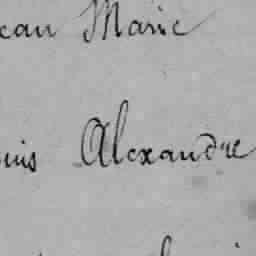 ean Marie
uis Alexandre